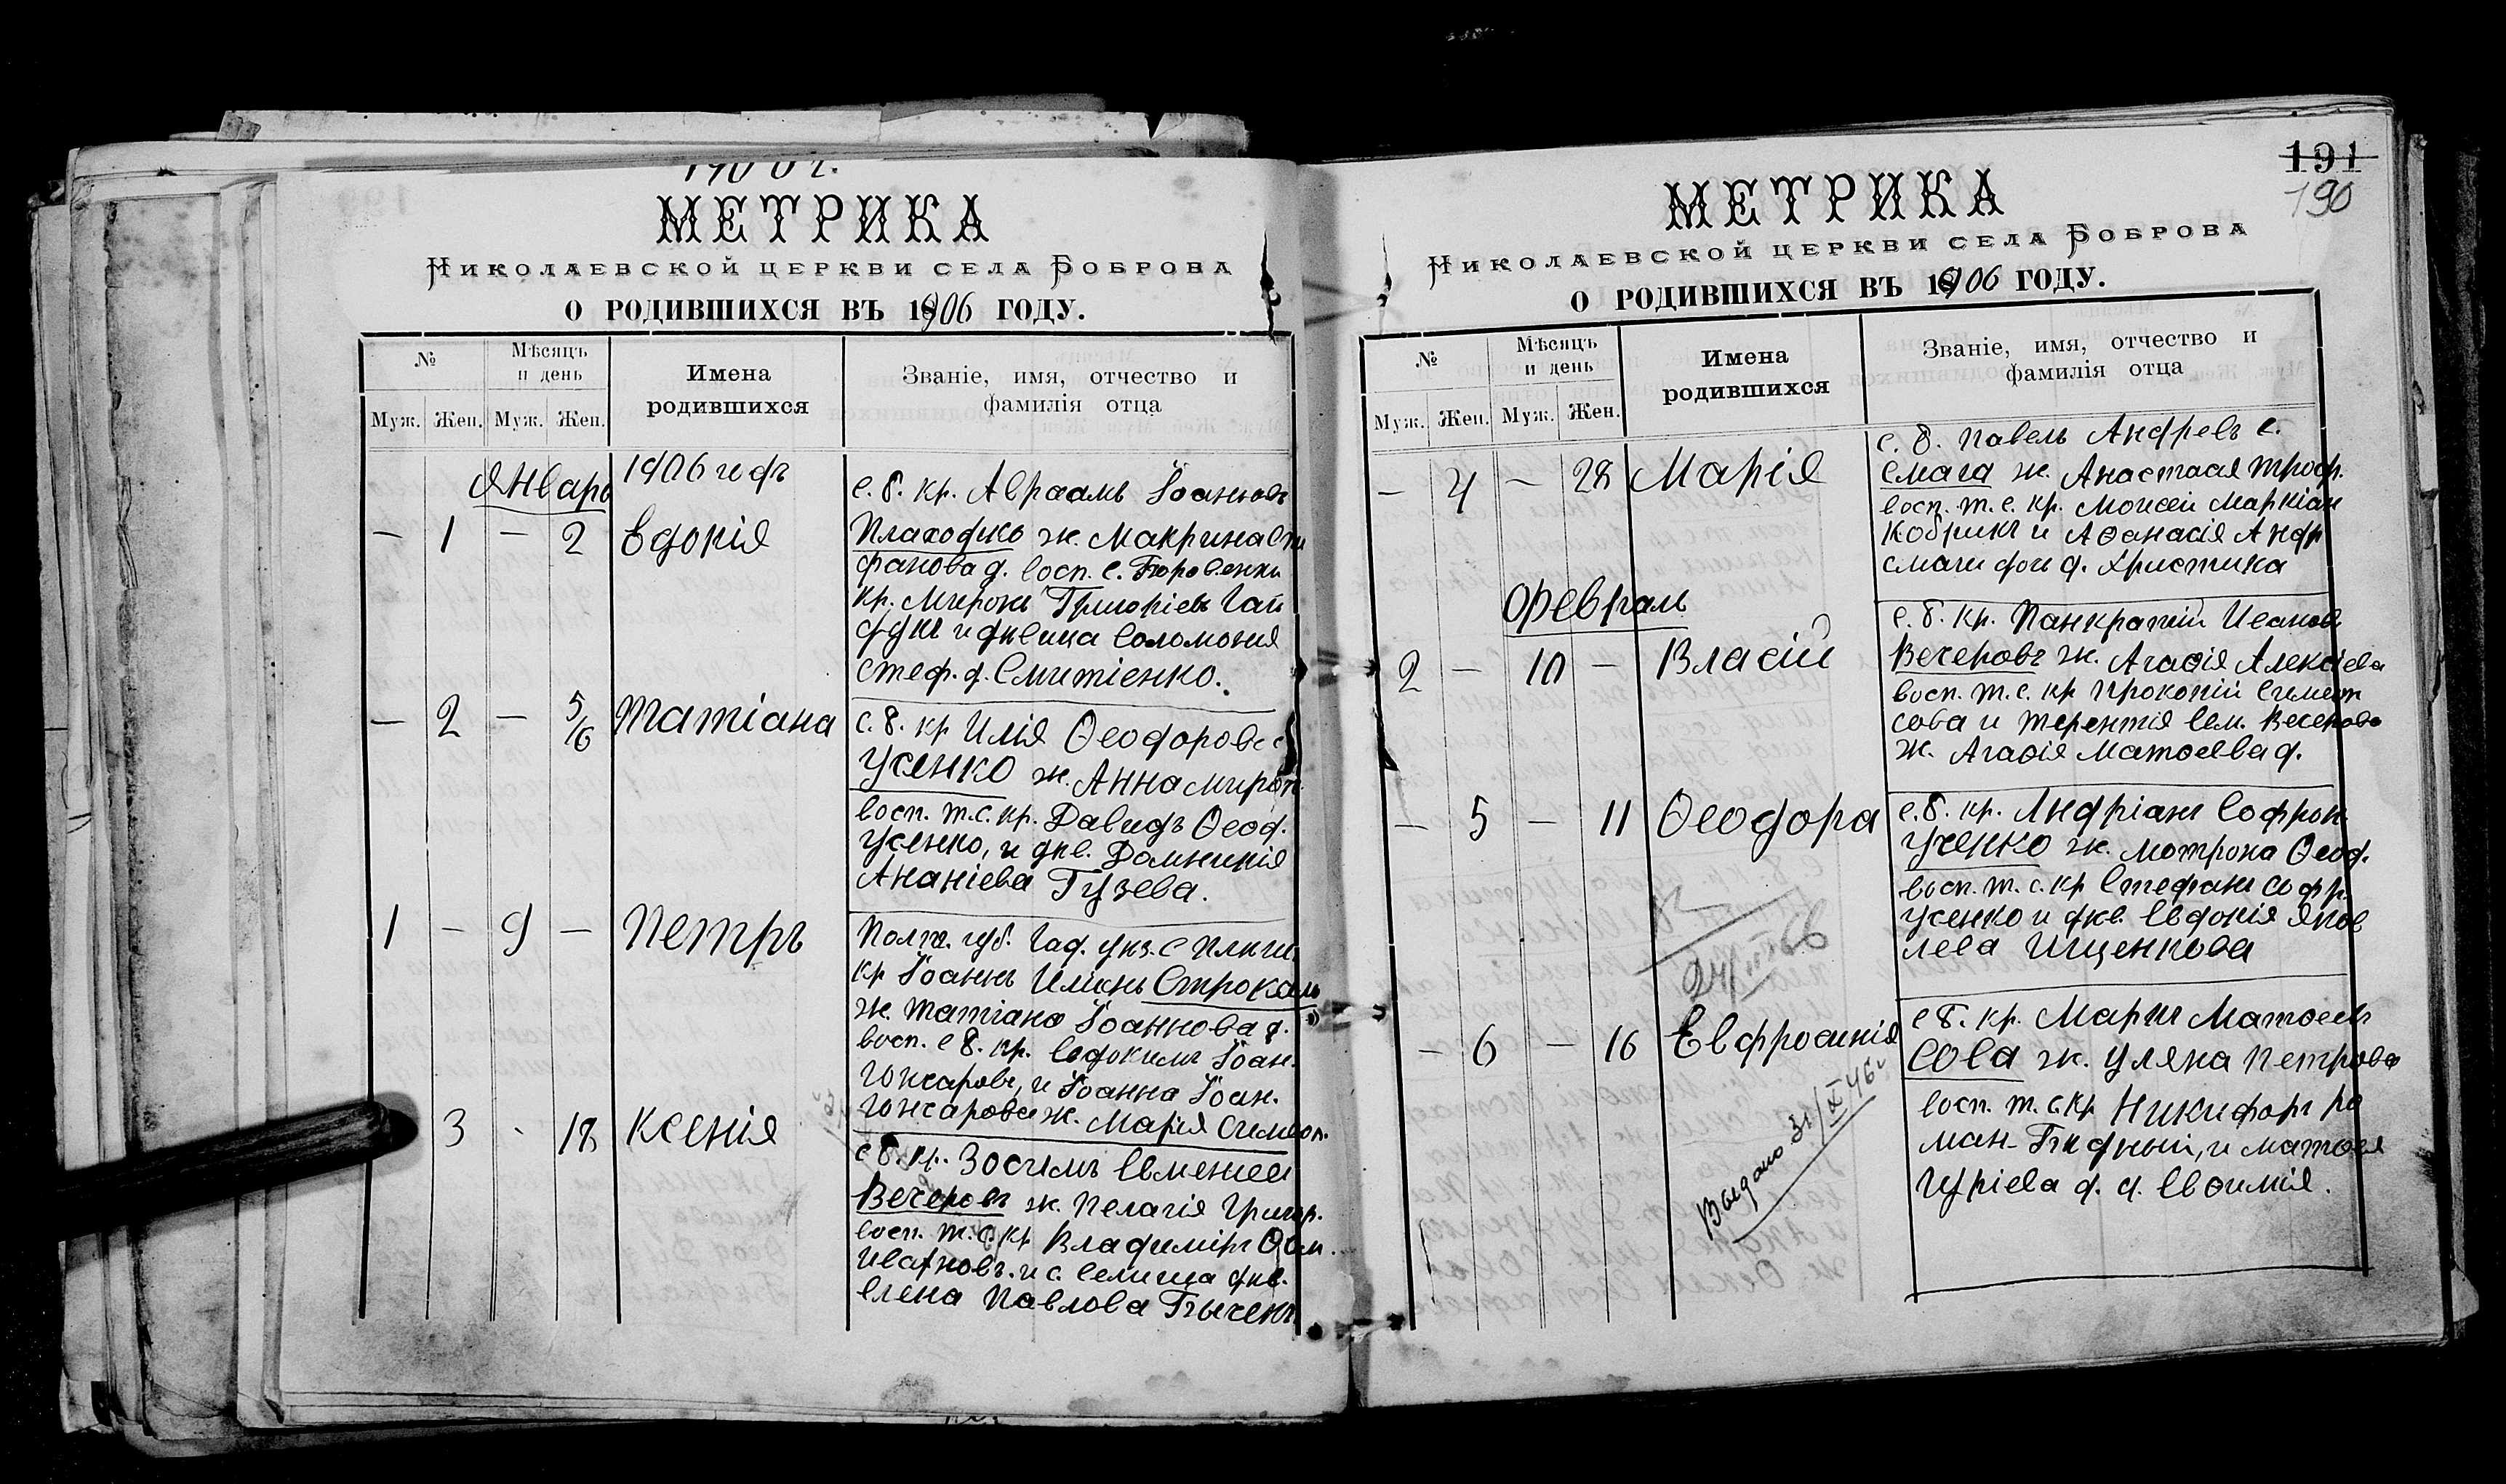 1906 г.
МЕТРИКА
Николаевской церкви села Боброва
О РОДИВШИХСЯ ВЪ 1906 ГОДУ.
№
Мѣсяцъ и день
Имена родившихся
Званіе, имя, отчество и фамилія отца
Муж. Жен. Муж. Жен.
Январь 1906 годъ
– 1 – 2 Евдокія
с. б. кр. Авраамъ Іоанновъ
Плаходько ж. Макрина Сте
фанова д. восп. с.
кр. Миронъ Григоріевъ Гай
и дѣвица Соломонія
Стеф. д. Смитіенко.
– 2 – 5/6 Татіана
с. б. кр Илія Ѳеодоровъ
Усенко ж. Анна Мирон.
восп. т. с. кр. Давидъ Ѳеод.
Усенко, и дѣв. Домникія
Ананіева Гузева.
1 – 9 – Петръ
Полт. губ. Гад. уѣз. с
кр Іоаннъ Иліинъ Строкаль
ж. Татіана Іоаннова д.
восп. с б. кр. Евдокимъ Іоан.
Гончаровъ, и Іоанна Іоан.
Гончарова ж. Марія Симеон.
3 - 18 Ксенія
с б. кр. Зосимъ Евменіев
Вечеровъ ж. Пелагія Григор.
восп. т. с. кр Владиміръ
Ивановъ. и с. Семища дѣв.
Елена Павлова
191
190
МЕТРИКА
Николаевской церкви села Боброва
О РОДИВШИХСЯ ВЪ 1906 ГОДУ.
№
Мѣсяцъ и день
Имена родившихся
Званіе, имя, отчество и фамилія отца
Муж. Жен. Муж. Жен.
– 4 – 28 Марія
с. б. Павелъ Андревъ с.
Смага ж. Анастасія Троф.
восп. т. с. кр. Моисей Маркіан
Кобринъ и Аѳанасія Андр
Смаги д. Христина
Февраль
2 – 10 – Власій
с. б. кр. Панкратій Иванов
Вечеровъ ж. Агаѳія Алексіева
восп. т. с. кр Прокопій Симеон
Сова и Терентія Сем. Вечерова
ж. Агаѳія Матѳеева д.
– 5 – 11 Ѳеодора
с. б. кр. Андріанъ Софрон.
Усенко ж. Мотрона Ѳеод.
восп. т. с. кр Стефанъ Софр.
Усенко и дѣв. Евдокія Яков
лева Ищенкова
– 6 – 16 Евфросинія
с б. кр. Марк Матѳеевъ
Сова ж. Уляна Петрова
восп. т. с. кр Никифоръ Ро
ман. Бѣдный, и Матѳея
Гуріева д. д. Евѳимія.
Выдано 31/X 46г